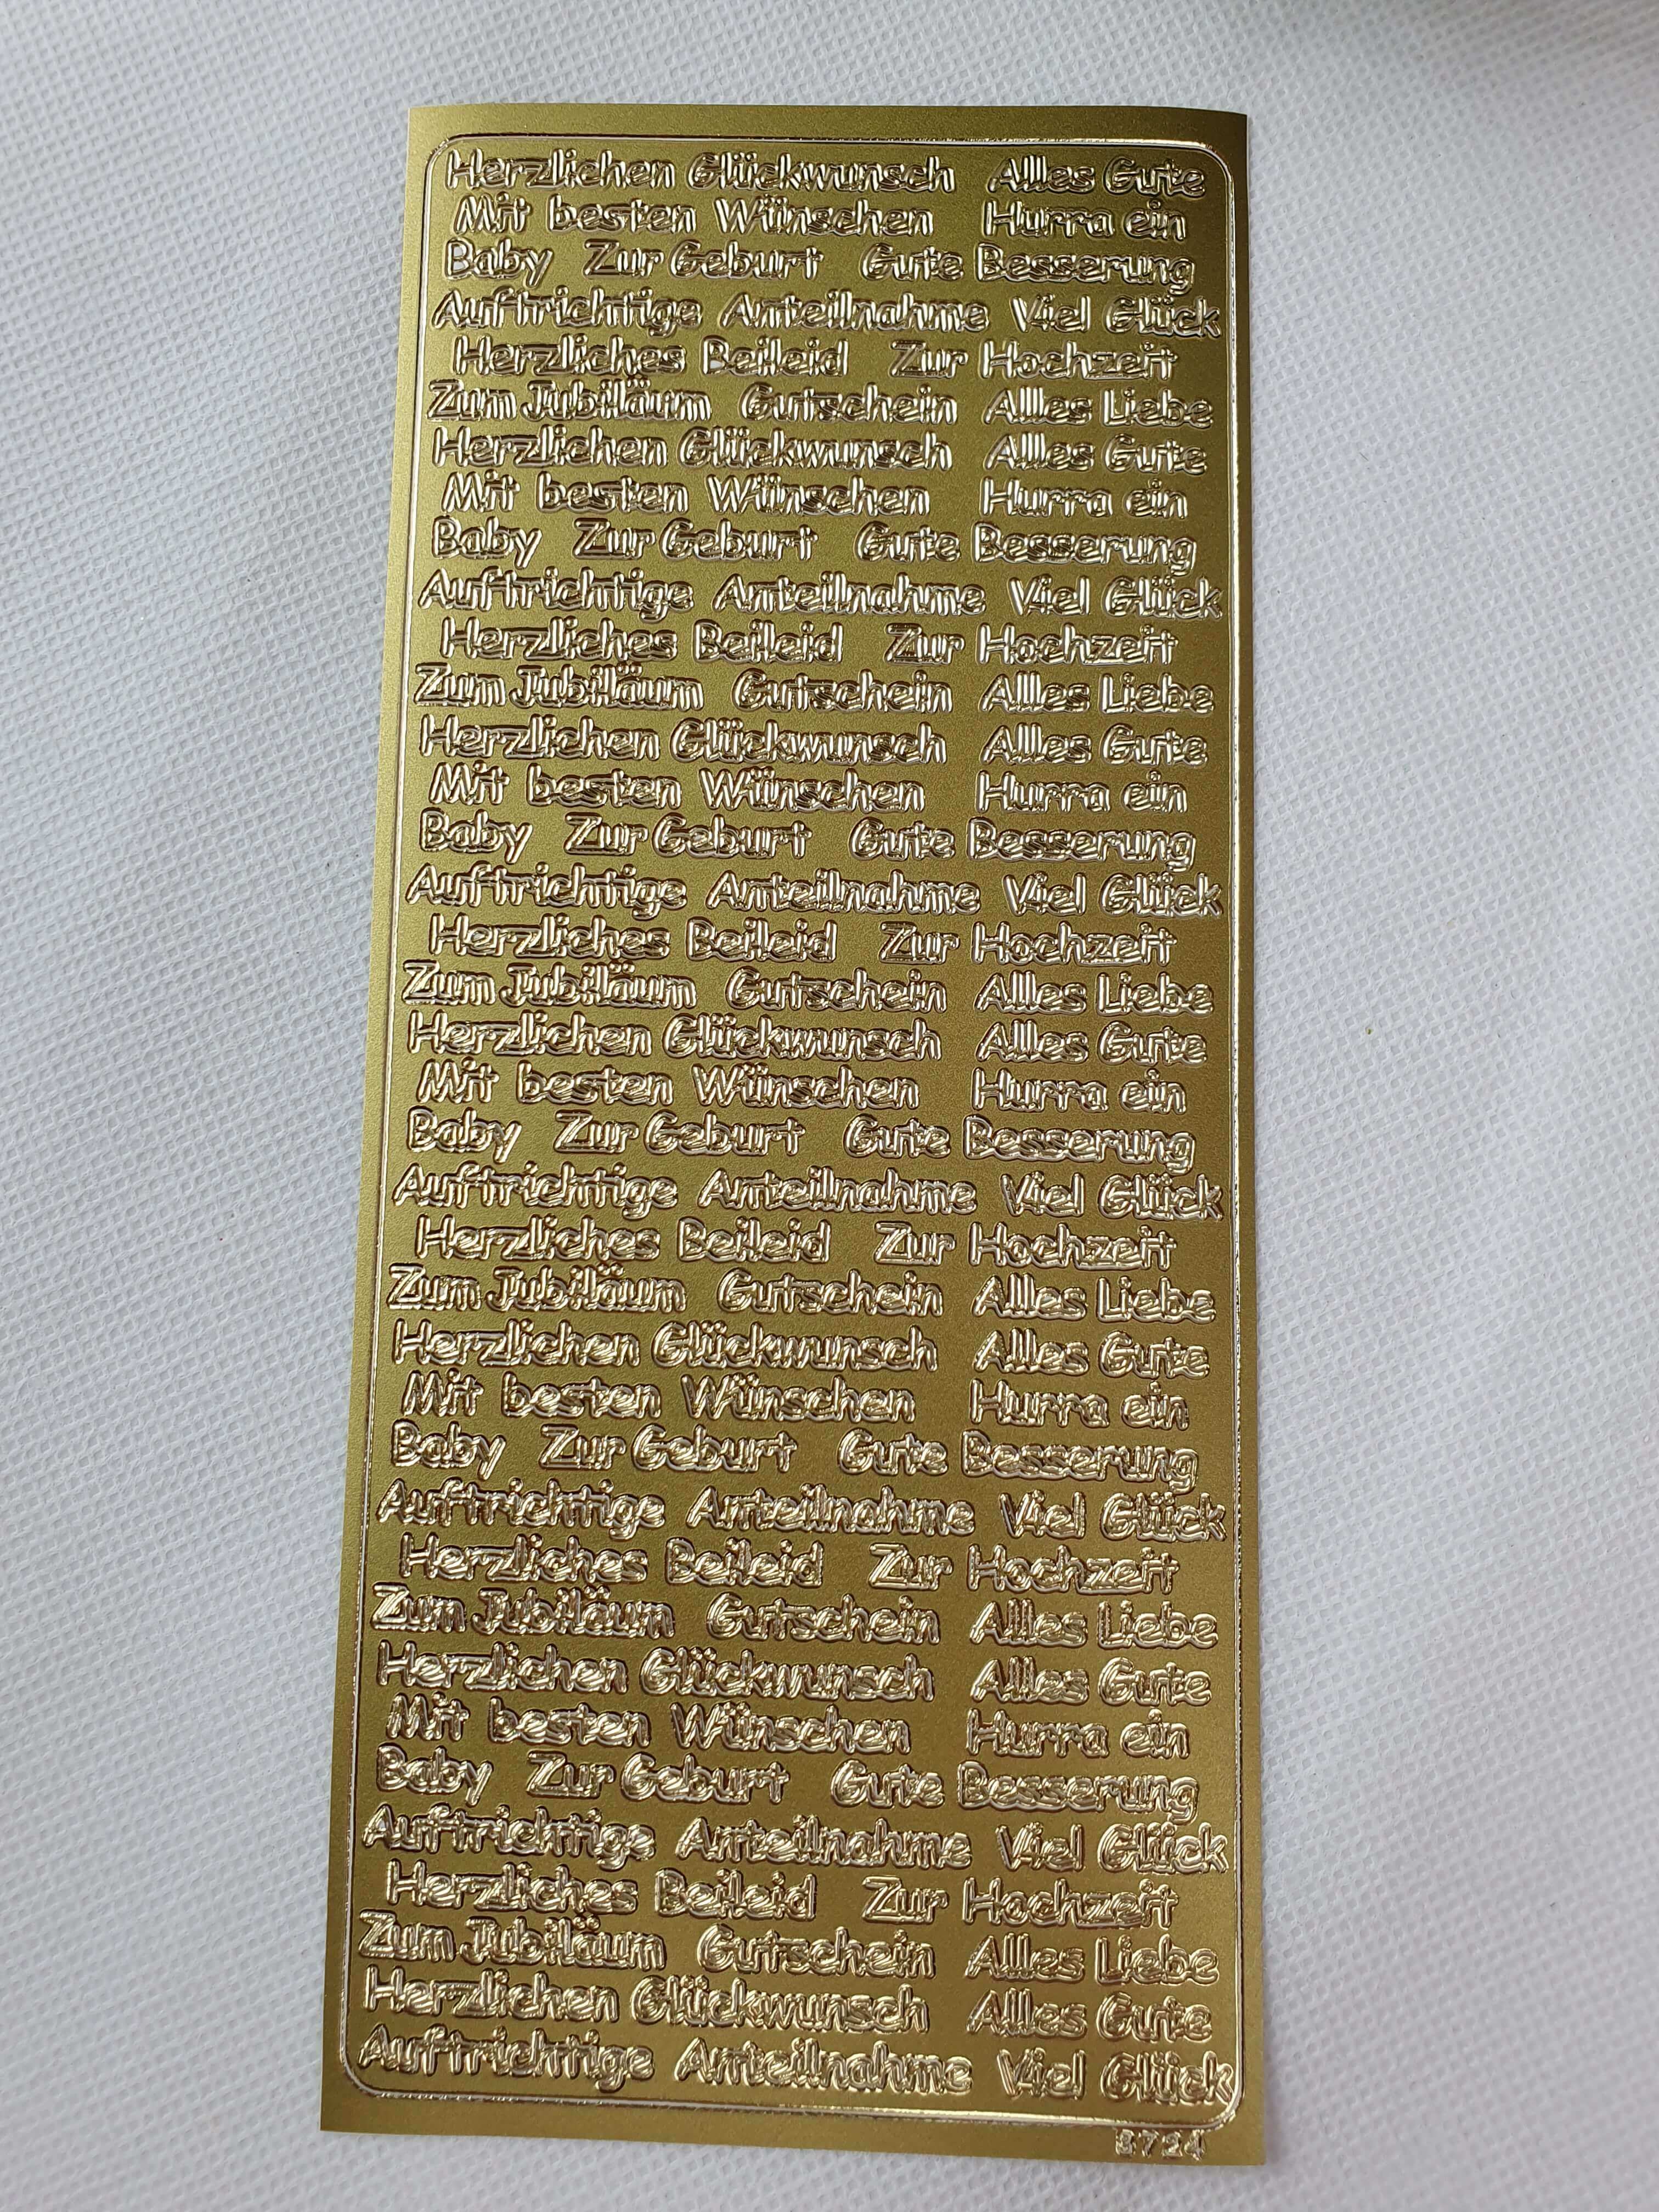 Herzlichen Glückwunsch Alles Gute
Mit besten Wünschen Hurra ein
Baby Zur Geburt Gute Besserung
Auftrichtige Anteilnahme Viel Glück
Herzliches Beileid Zur Hochzeit
Zum Jubiläum Gutschein Alles Liebe
Herzlichen Glückwunsch Alles Gute
Mit besten Wünschen Hurra ein
Baby Zur Geburt Gute Besserung
Auftrichtige Anteilnahme Viel Glück
Herzliches Beileid Zur Hochzeit
Zum Jubiläum Gutschein Alles Liebe
Herzlichen Glückwunsch Alles Gute
Mit besten Wünschen Hurra ein
Baby Zur Geburt Gute Besserung
Auftrichtige Anteilnahme Viel Glück
Herzliches Beileid Zur Hochzeit
Zum Jubiläum Gutschein Alles Liebe
Herzlichen Glückwunsch Alles Gute
Mit besten Wünschen Hurra ein
Baby Zur Geburt Gute Besserung
Auftrichtige Anteilnahme Viel Glück
Herzliches Beileid Zur Hochzeit
Zum Jubiläum Gutschein Alles Liebe
Herzlichen Glückwunsch Alles Gute
Mit besten Wünschen Hurra ein
Baby Zur Geburt Gute Besserung
Auftrichtige Anteilnahme Viel Glück
Herzliches Beileid Zur Hochzeit
Zum Jubiläum Gutschein Alles Liebe
Herzlichen Glückwunsch Alles Gute
Mit besten Wünschen Hurra ein
Baby Zur Geburt Gute Besserung
Auftrichtige Anteilnahme Viel Glück
Herzliches Beileid Zur Hochzeit
Zum Jubiläum Gutschein Alles Liebe
Herzlichen Glückwunsch Alles Gute
Auftrichtige Anteilnahme Viel Glück
3724